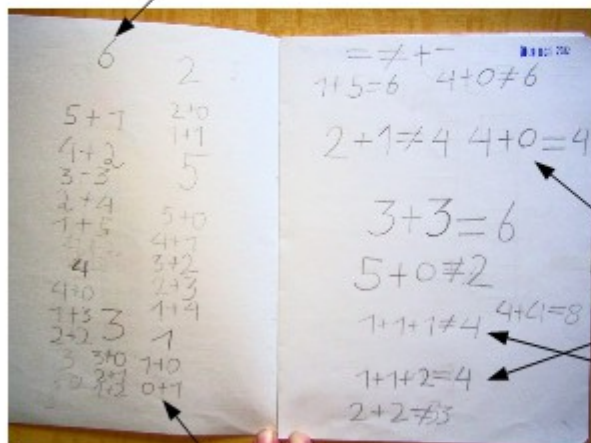 6
5+1
4+2
3-3
2+4
1+5
4
4+0
1+3
2+2
3
3+0
2+1
1+2
2
2+0
1+1
5
5+0
4+1
3+2
2+3
1+4
1
1+0
0+1
= ≠ + -
1+5=6 4+0≠6
2+1≠4 4+0=4
3+3=6
5+0≠2
1+1+1≠4 4+4=8
1+1+2=4
2+2≠53